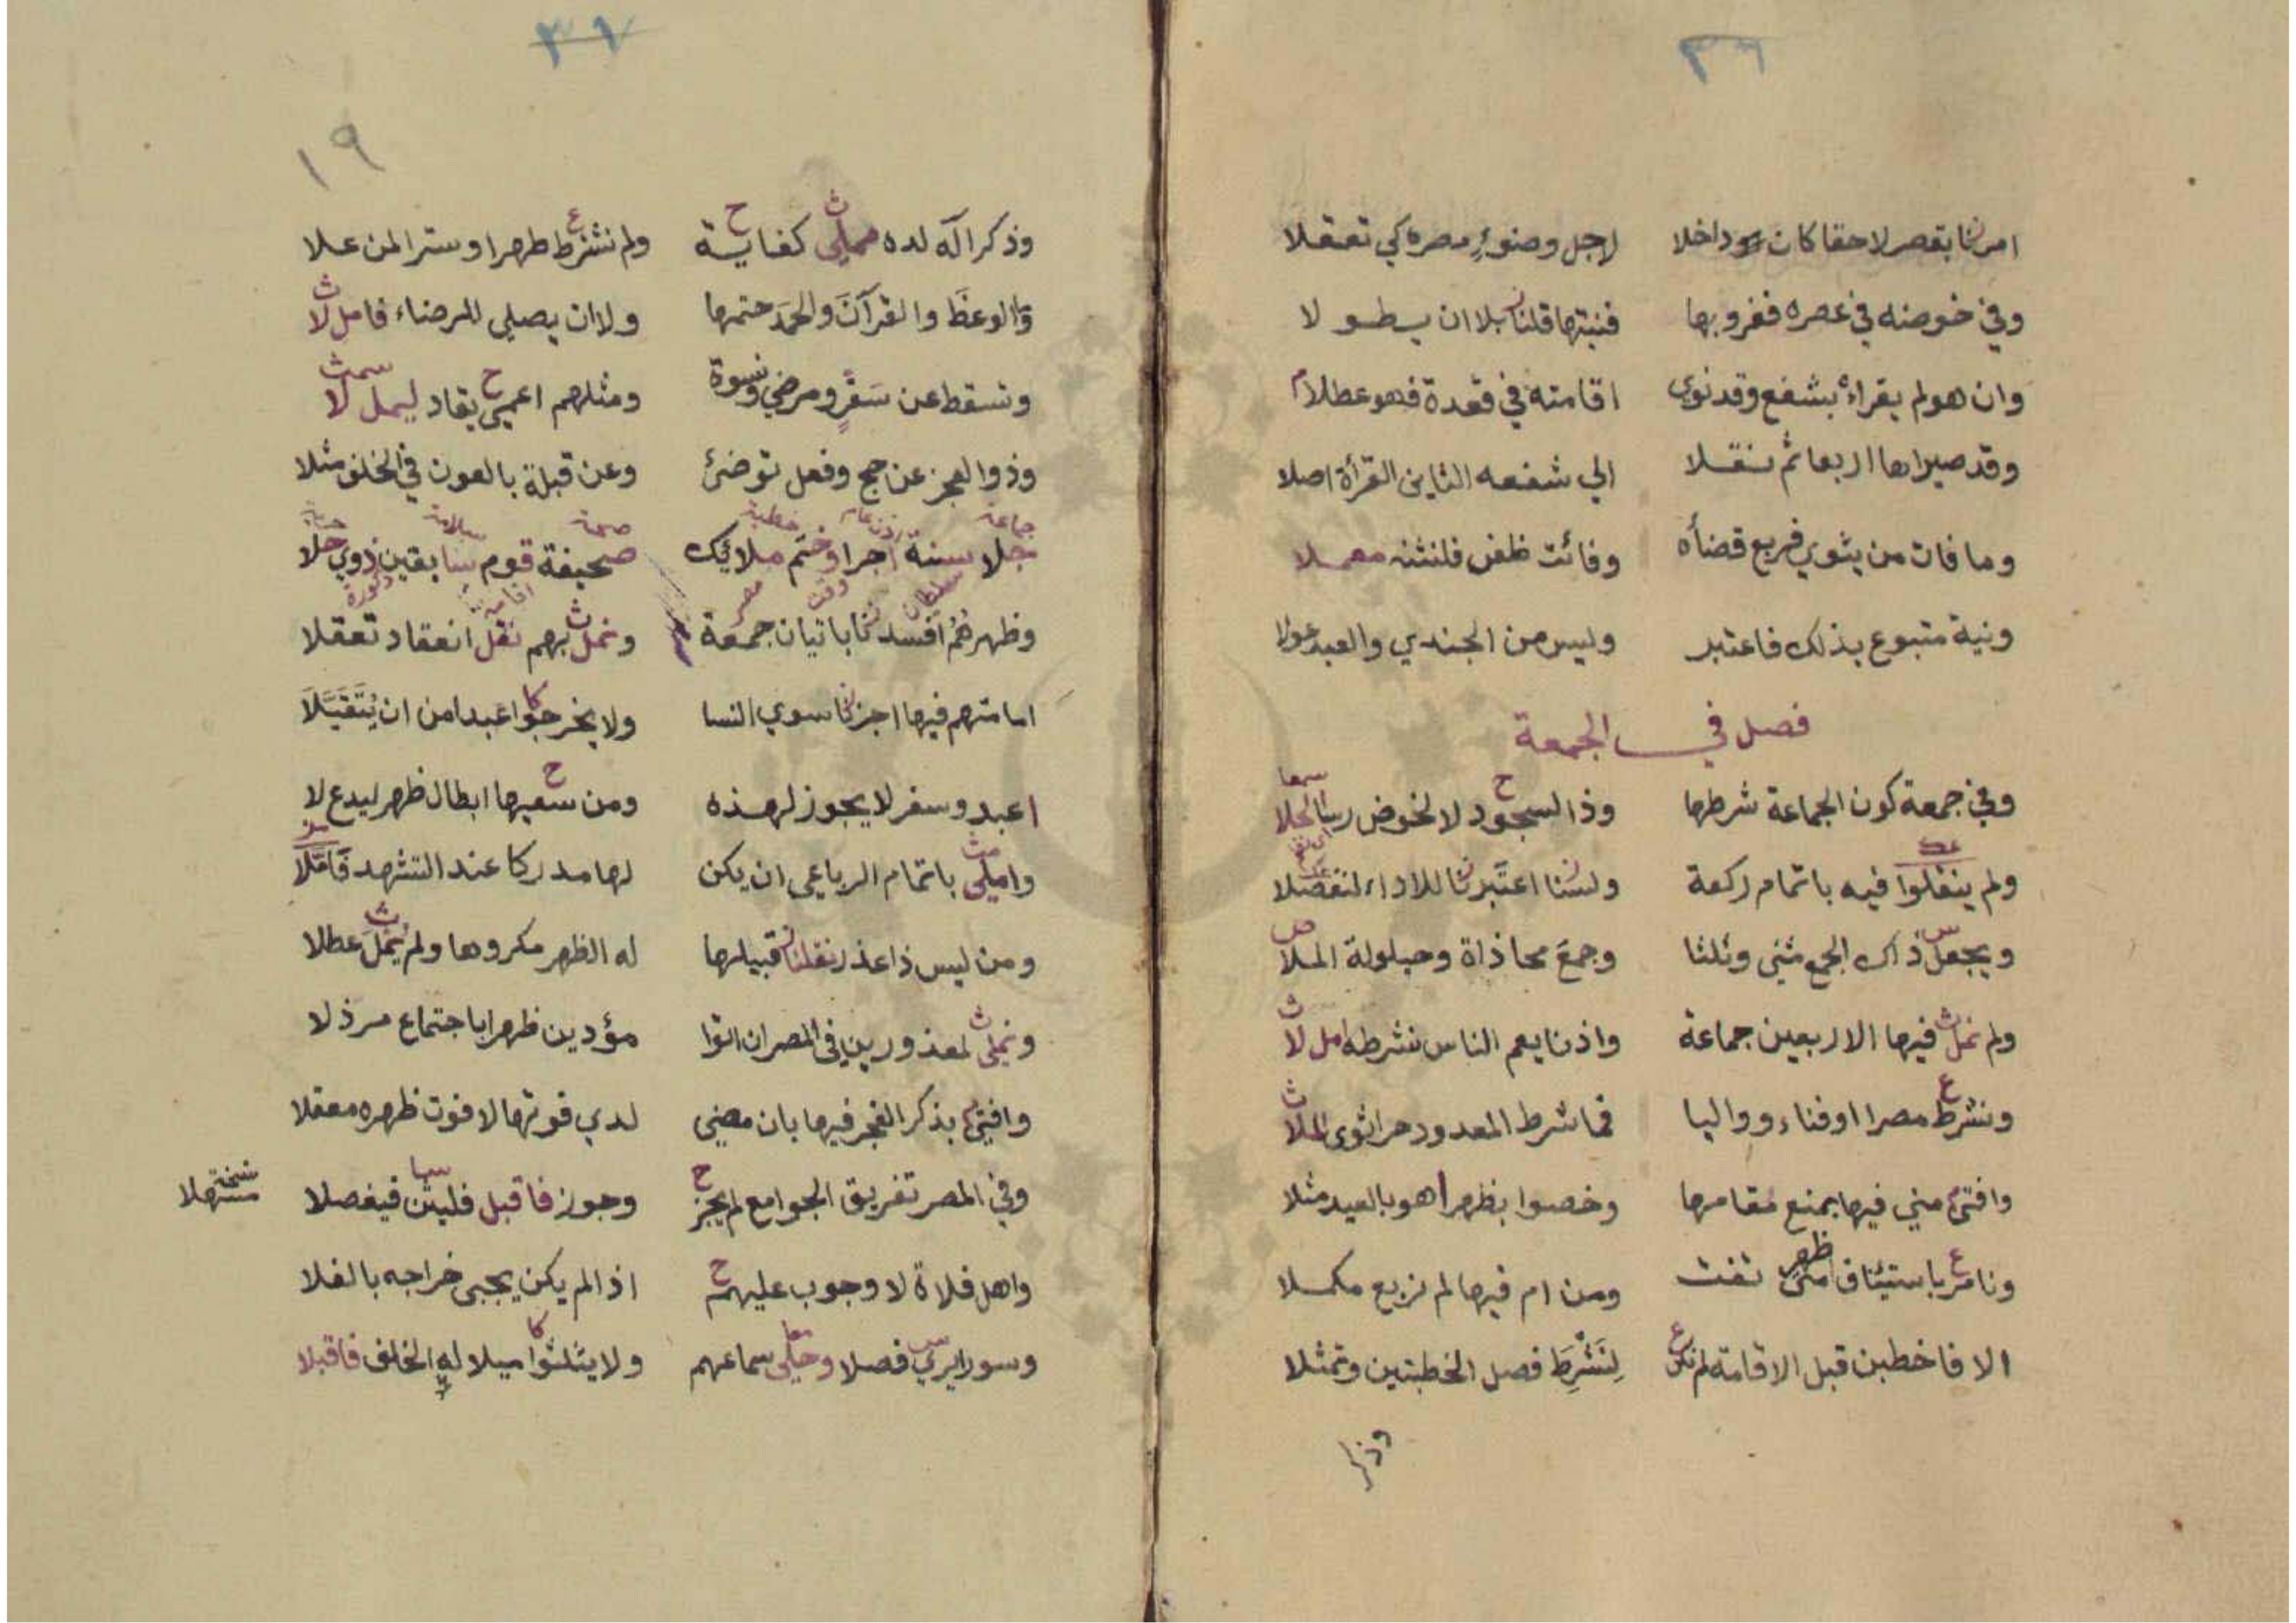 ٣٦
امرنا بقصر لاحقا كان داخلا لاجل وضوء مصره كي تعقلا
وفي خوضه في عصره فغروبها فنيتها قلنا بلا ان يطولا
وان هو لم يقراء بشفع وقد نوى اقامته في قعدة فهو عطلا
وقد صيراها اربعا ثم نقلا الي شفعه الثاني القرأة اصلا
وما فات من يثوي فربع قضأه وفائت ظعن فلنثنه مهملا
ونية متبوع بذلك فاعتبر وليس من الجندي والعبد عولا
فصل في الجمعة
وفي جمعة كون الجماعة شرطها وذا السجود لا لخوض
ولم ينقلوا فيه باتمام ركعة ولسنا اعتبرنا للاداء لنفصلا
ويجعل ذاك الجمع مثنى وثلثا وجمع محاذاة وحيلولة الملا
ولم نمل فيها الاربعين جماعة واذنا يعم الناس نشرطه امل لا
ونشرط مصرا او فناء وواليا فما شرط المعدود حرا ثوى الملا
وافتى مني فيها بمنع مقامها وخصوا بظهرا هو بالعيد مثلا
ونامر باستيناف ظهر متى تفت ومن ام فيها لم نربع مكملا
الا فاخطبن قبل الاقامة لم نكن لنشرط فصل الخطبتين وتمثلا
وذكر
٣٧
١٩
وذكر اله لده مملي كفاية ولم نشترط طهرا وسترا لمن علا
والوعظ والقرآن والحمد حتمها ولا ان يصلي للرضاء فامل لا
وتسقط عن سفر ومرضي ونسوة ومثلهم اعمي يقاد ليمل لا
وذو العجز عن حج وفعل توضئ وعن قبلة بالعون في الخلف مثلا
جماعة خطبة صحة
جلا سنة اجرا وختم ملائك صحيفة قوم سابقين ذوي حلا
سلطان وقت مصر اقامة ذكورة
وظهرهم افسدنا باتيان جمعة ونمل بهم نقل انعقاد تعقلا
امامتهم فيها اجزنا سوي النسا ولا يخرجوا عبدا من ان يتقبلا
اعبد وسفر لا يجوز لهذه ومن سعيها ابطال ظهر ليدع لا
واملي باتمام الرباعي ان يكن لها مدركا عند التشهد
ومن ليس ذا عذر نقلنا قبيلها له الظهر مكروها ولم يمل عطلا
ونملي لمعذورين في المصر ان اتوا مؤدين ظهرا باجتماع مرذلا
وافتى بذكر الفجر فيها بان مضي لدي فوتها لا فوت ظهره معقلا
وفي المصر تفريق الجوامع لم يجز وجوز فاقبل فليثن فيفصلا
نسخة مسهلا
واهل فلاة لا وجوب عليهم اذا لم يكن يجبى خراجه بالفلا
وسورا يري فصلا وحلي سماعهم ولا يثلثوا ميلا له الخلف فاقبلا